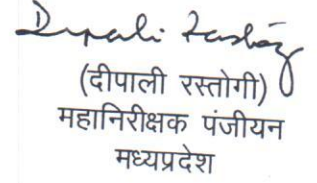 Dipali Rastogi
(दीपाली रस्तोगी)
महानिरीक्षक पंजीयन
मध्यप्रदेश